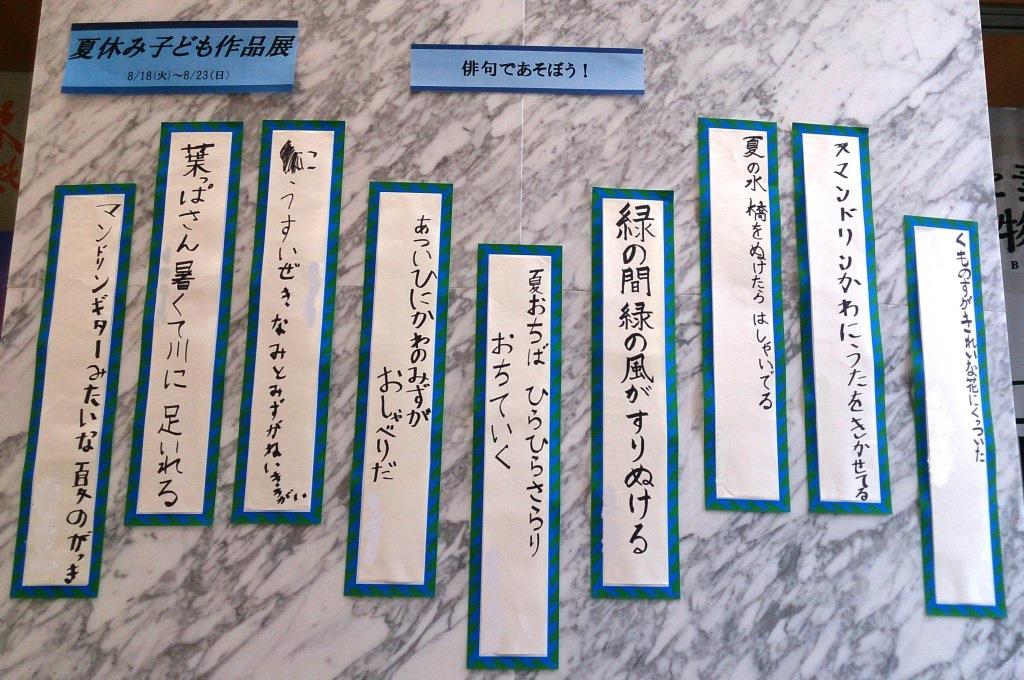 夏休み子ども作品展
8/18(火)~8/23(日)
俳句であそぼう!
くものすがきれいな花にくっついた
マンドリンかわにうたをきかせてる
夏の水 橋をぬけたら はしゃいでる
緑の間 緑の風がすりぬける
夏おちば ひらひらさらり
おちていく
あついひにかわのみずが
おしゃべりだ
うすいぜき なみとみずがね
葉っぱさん 暑くて川に 足いれる
マンドリンギターみたいな 夏のがっき
物